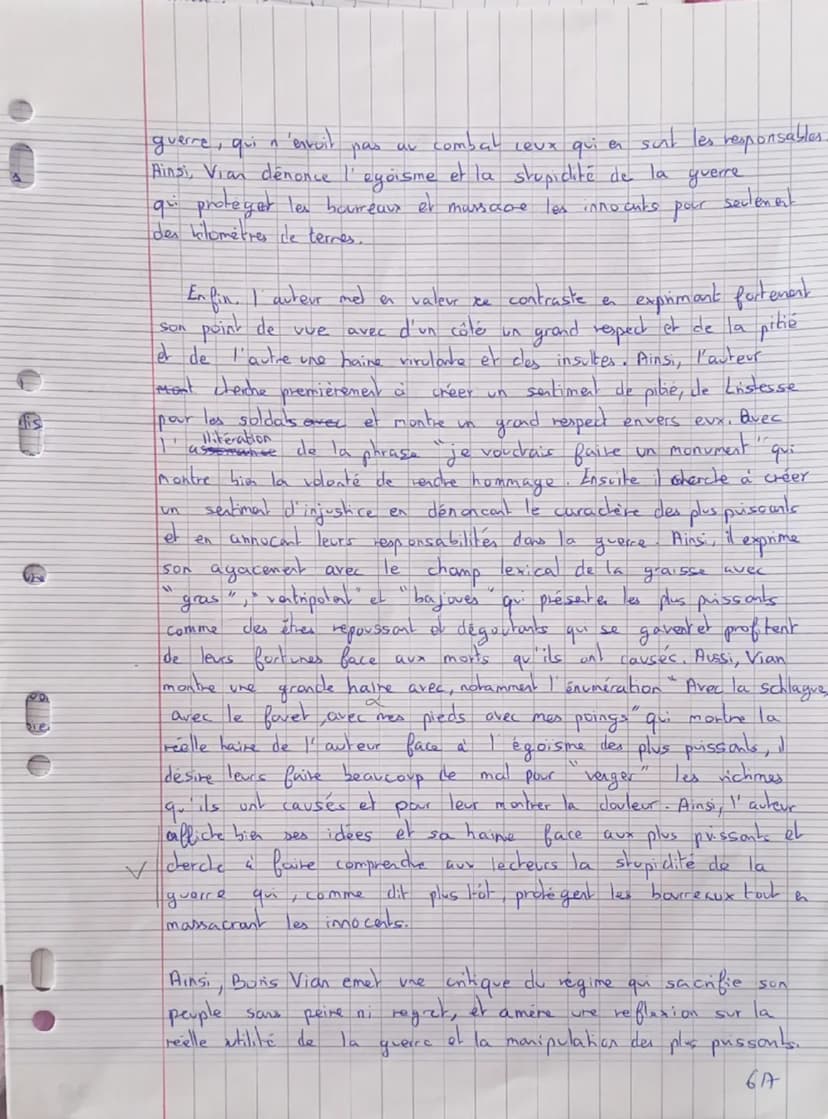 guerre, qui n'envoit pas au combat ceux qui en sont les responsables.
Ainsi, Vian dénonce l'egoïsme et la stupidité de la guerre
qui protéget les bourreaux et massacre les innocents pour seulement
des kilomètres de terres.
Enfin, l'auteur met en valeur ce contraste en exprimant fortement
son point de vue avec d'un côté un grand respect et de la pitié
et de l'autre une haine virulante et des insultes. Ainsi, l'auteur
cherche premièrement à créer un sentiment de pitié, de tristesse
pour les soldats et montre un grand respect envers eux. Avec
l'allitération de la phrase "je voudrais faire un monument" qui
montre bien la volonté de rendre hommage. Ensuite il cherche à créer
un sentiment d'injustice en dénoncant le caractère des plus puissants
et en annocant leurs responsabilités dans la guerre. Ainsi, il exprime
son agacement avec le champ lexical de la graisse avec
"gras", "ventripotent" et "bajoues" qui présente les plus puissants
comme des êtres repoussant et dégoutants qui se gavent et profitent
de leurs fortunes face aux morts qu'ils ont causés. Aussi, Vian
montre une grande haine avec, notamment l'énumération "Avec la schlague,
avec le fouet, avec mes pieds avec mes poings" qui montre la
réelle haine de l'auteur face à l'égoïsme des plus puissants, il
désire leurs faire beaucoup de mal pour "venger" les victimes
qu'ils ont causés et pour leur montrer la douleur. Ainsi, l'auteur
affiche bien ses idées et sa haine face aux plus puissants et
cherche à faire comprendre aux lecteurs la stupidité de la
guerre qui, comme dit plus tôt, protégent les bourreaux tout en
massacrant les innocents.
Ainsi, Boris Vian emet une critique du régime qui sacrifie son
peuple sans peine ni regret, et amène une reflexion sur la
réelle utilité de la guerre et la manipulation des plus puissants.
6A